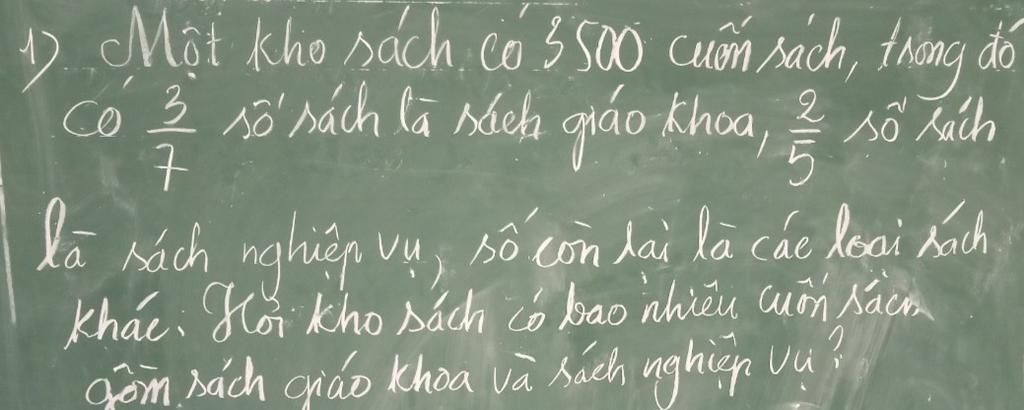 1) Một kho sách có 3500 cuốn sách, trong đó
có 3/7 số sách là sách giáo khoa, 2/5 số sách
là sách nghiệp vụ, số còn lai là các loai sách
khác. Hỏi kho sách có bao nhiêu cuốn sách
gồm sách giáo khoa và sách nghiệp vụ?